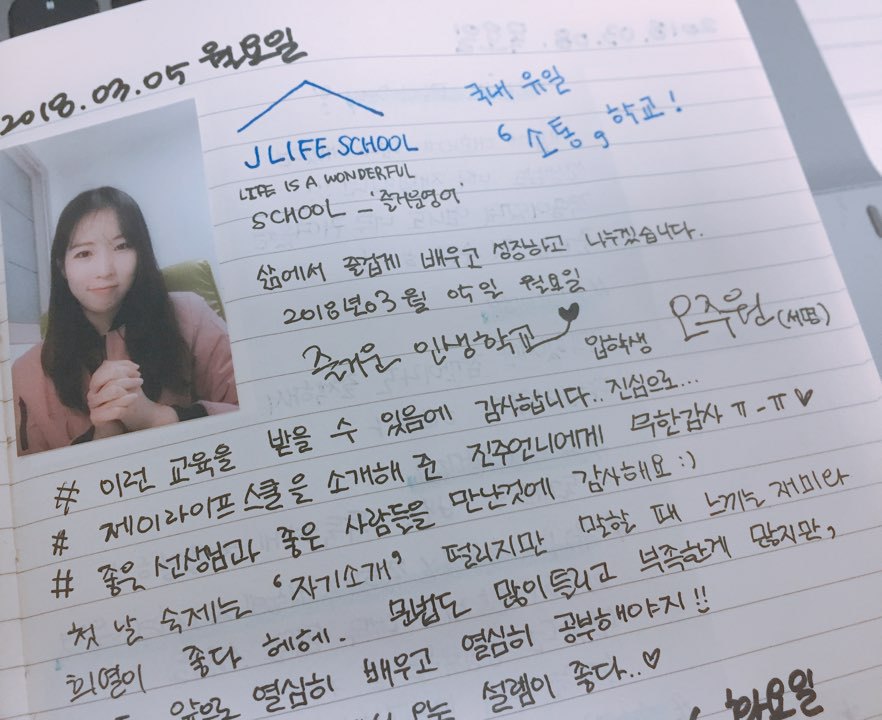 2018.03.05 월요일
국내 유일
‘소통’ 학교!
J LIFE SCHOOL
LIFE IS A WONDERFUL
SCHOOL - '즐거운영어'
삶에서 즐겁게 배우고 성장하고 나누겠습니다.
2018년 03월 05일 월요일
즐거운 인생학교♥ 입학생 오주원 (서명)
# 이런 교육을 받을 수 있음에 감사합니다.. 진심으로...
# 제이라이프스쿨을 소개해 준 진주언니에게 무한감사 ㅠ-ㅠ♥
# 좋은 선생님과 좋은 사람들을 만난것에 감사해요 :)
첫 날 숙제는 ‘자기소개’ 떨리지만 말할 때 느끼는 재미와
희열이 좋다 헤헤. 문법도 많이 틀리고 부족한게 많지만,
앞으로 열심히 배우고 열심히 공부해야지!!
설렘이 좋다..♡
화요일